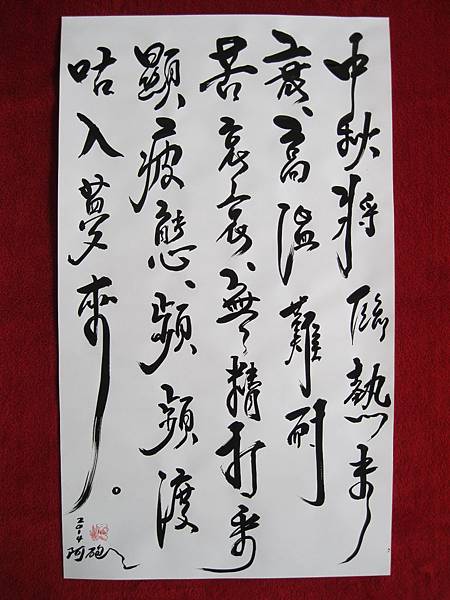 中秋將臨熱未
衰、高溫難耐
苦哀哀、無精打采
顯疲態、頻頻渡
咕入夢來。
2014
阿砲